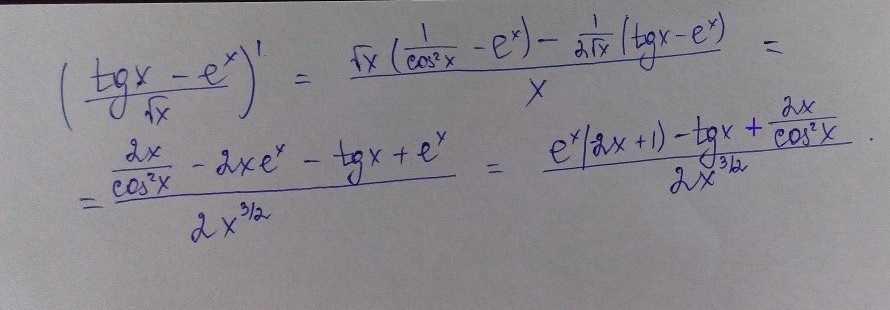 (tgx − e^x / √x)' = √x (1/cos²x − e^x) − 1/2√x (tgx − e^x) / x =
= 2x/cos²x − 2xe^x − tgx + e^x / 2x^3/2 = e^x(2x+1) − tgx + 2x/cos²x / 2x^3/2 .